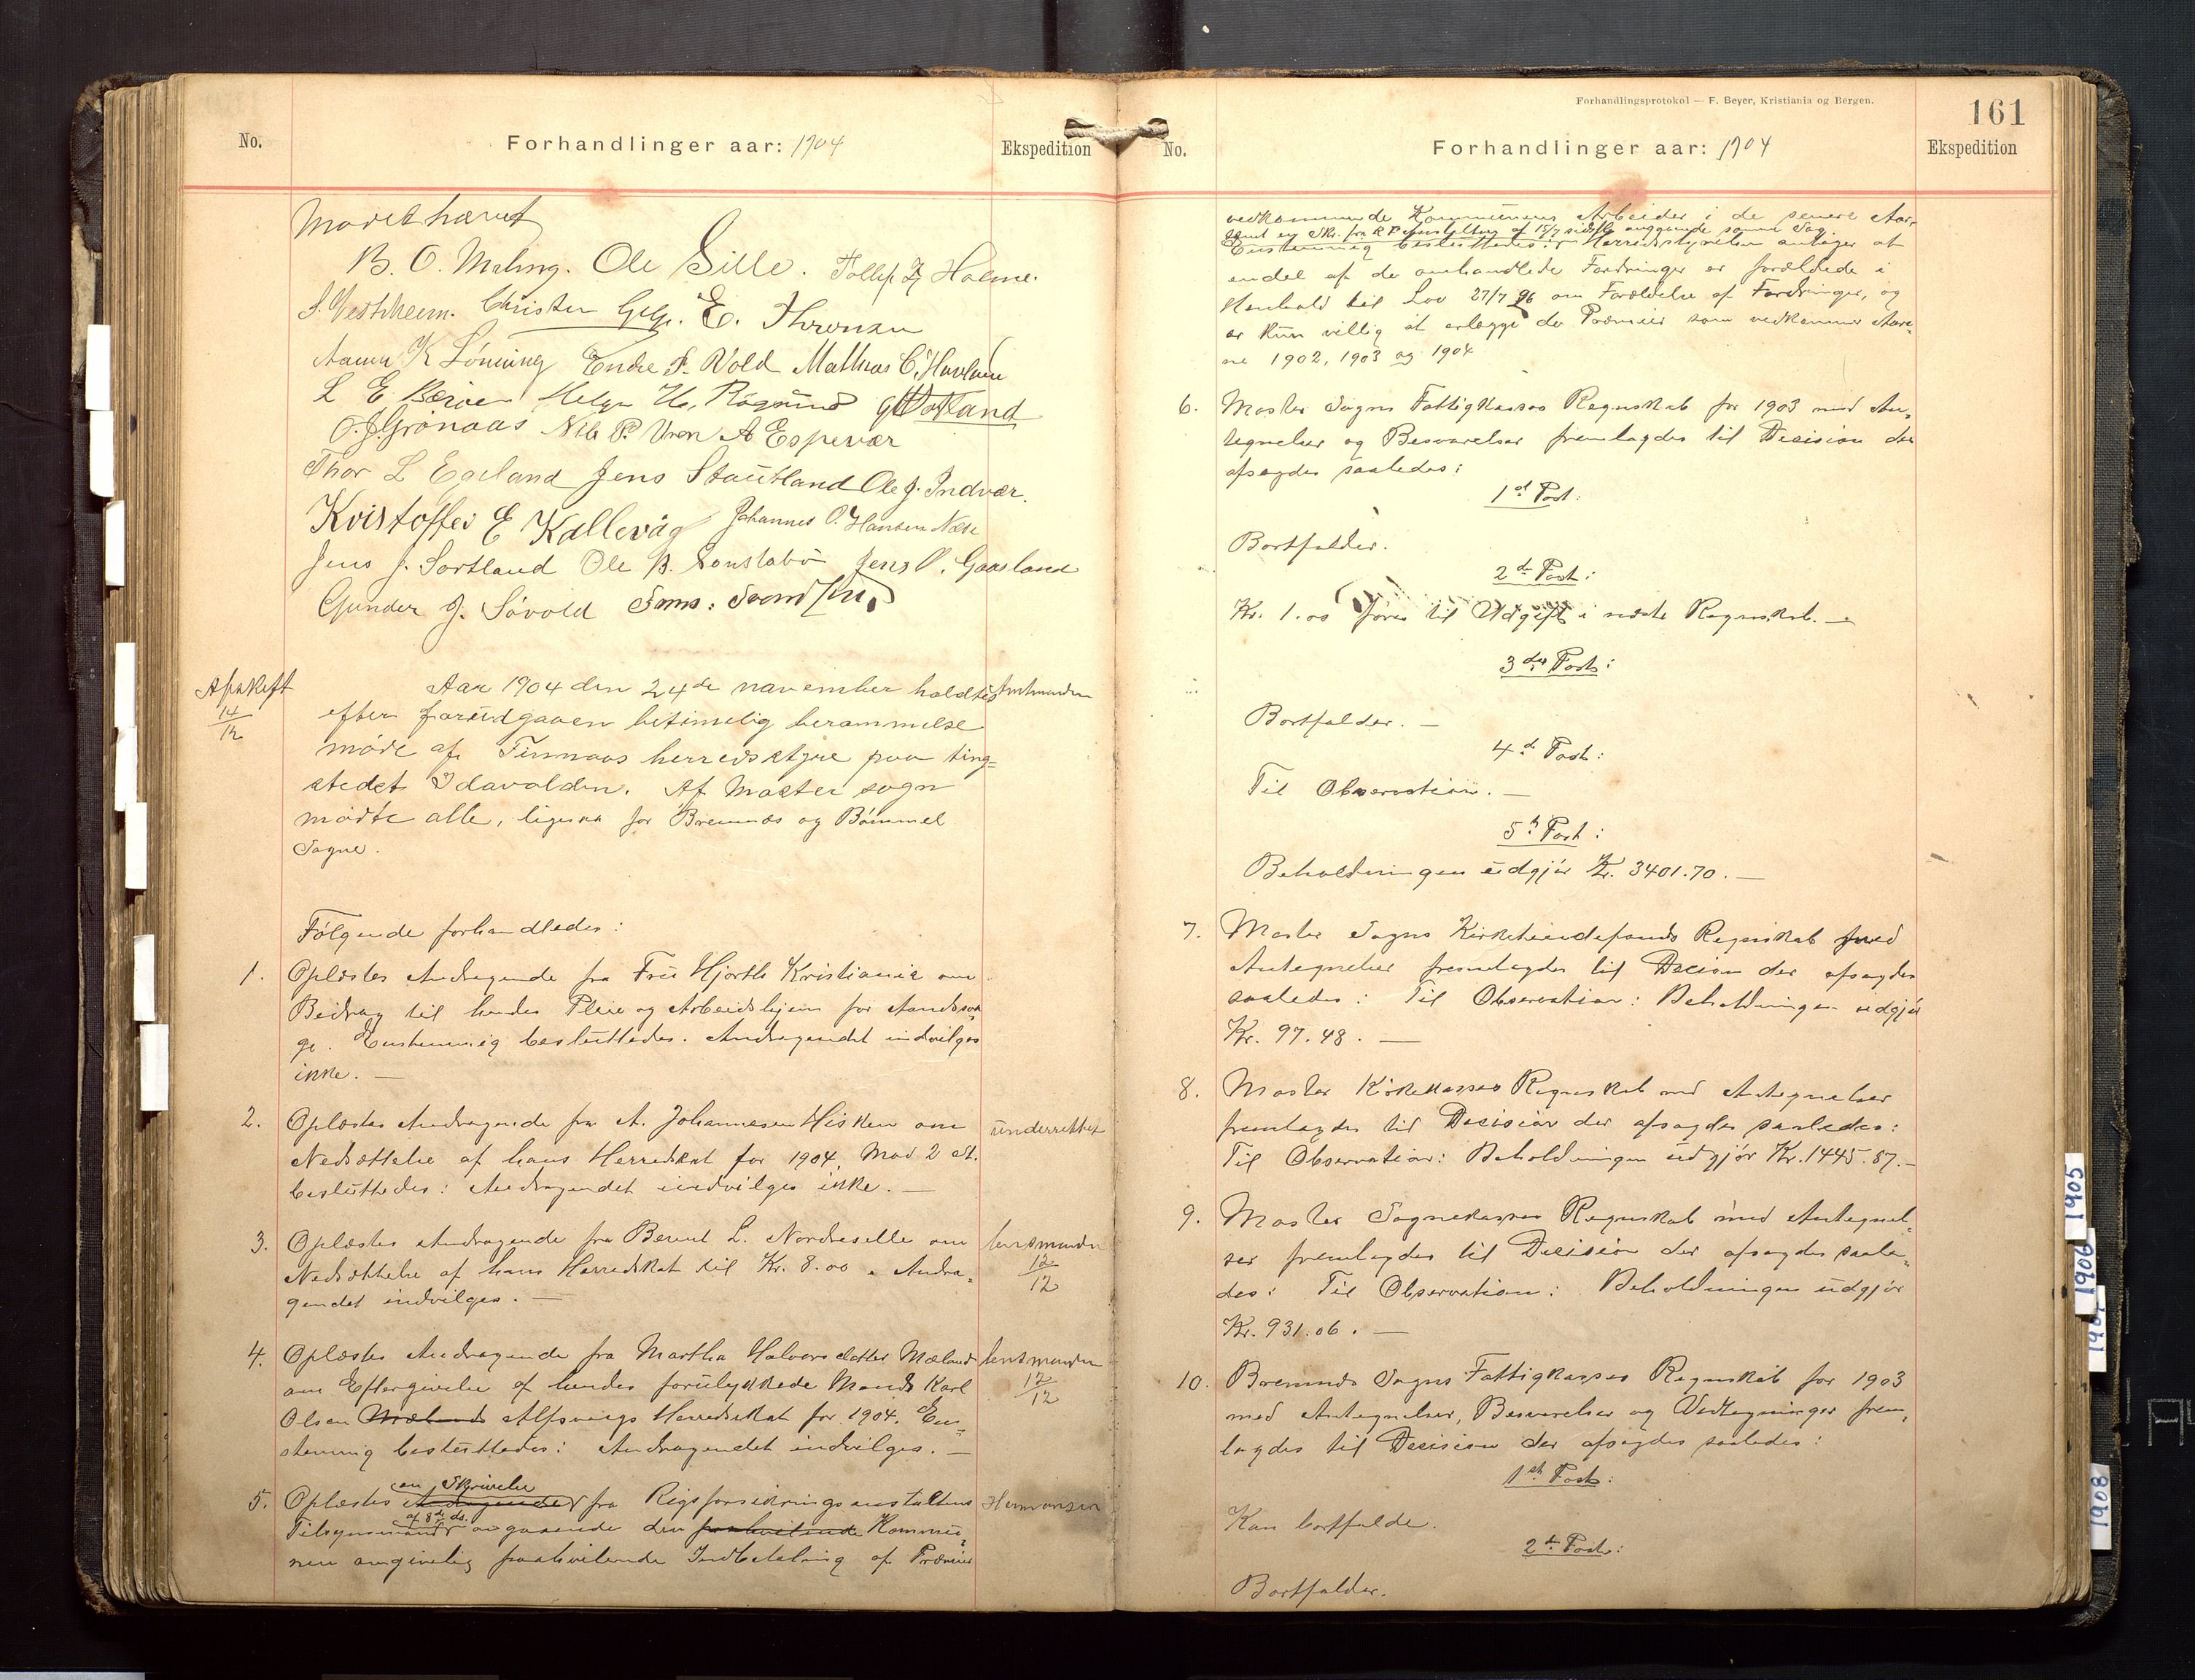 No.
Forhandlinger aar: 1904
Ekspedition
Mødet hævet
B. O. Maling. Ole Sille. Tollef J Holme.
S. Vestheim. Christen Gjelje. E. Thorensen
Aamu K Lönning Endre P. Vold Mathias C. Havlsen
L E Bærøen Helge H. Røgsund
O. J Grönaas Nils P. Vren A Espevær
Thor L Egeland Jens Stautland Ole J. Indvær.
Kristoffer E Kallevåg Johannes O. Hansen Næse
Jens J. Sortland Ole B. Sønstabø Jens O. Gaasland
Gunder J. Søvold Sems: Svendsen
Afskrift
14/12
Aar 1904 den 24de november holdtes Amtmanden
efter forudgaaen betimelig berammelse
møde af Finnaas herredsstyre paa ting=
stedet Idavolden. Af Moster sogn
mødte alle, ligesaa for Bremnes og Bømmel
Sogne.
Følgende forhandledes:
1. Oplæstes Andragende fra Fru Hjorth Kristiania om
Bidrag til hendes Pleie og Arbeidshjem for Aandssva-
ge. Enstemmig besluttedes. Andragendet indvilges
ikke. —
2. Oplæstes Andragende fra A. Johannesen Hisken om underrettet
Nedsættelse af hans Herredskat for 1904. Mod 2 st.
besluttedes: Andragendet indvilges ikke. —
3. Oplæstes Andragende fra Berent L. Nordreselle om lensmanden
Nedsættelse af hans Herredskat til Kr. 8.00. Andra- 12/12
gendet indvilges. —
4. Oplæstes Andragende fra Martha Halvorsdatter Mæland lensmanden
om Eftergivelse af hendes forulykkede Mands Karl 12/12
Olsen Mælands Alfsvaags Herredsskat for 1904. En-
stemmig besluttedes: Andragendet indvilges. —
en Skrivelse
5. Oplæstes Andragende fra Rigsforsikringsanstaltens Hermansen
af 8de ds.
Tilsynsmand angaaende den paahvilende Kommu-
nen angivelig paahvilende Indbetaling af Præmier
Forhandlingsprotokol — F. Beyer, Kristiania og Bergen.
161
No.
Forhandlinger aar: 1904
Ekspedition
vedkommende Kommunens Arbeider i de senere Aar,
samt en Skr. fra R F anstalten af 15/7 sidstl. angaaende samme Sag.
Enstemmig besluttedes: Herredsstyrelsen antager at
endel af de omhandlede Fordringer er forældede i
Henhold til Lov 27/7 96 om Forældelse af Fordringer, og
er kun villig at erlægge de Præmier som vedkommer Aare-
ne 1902, 1903 og 1904
6. Moster Sogns Fattigkasses Regnskab for 1903 med An-
tegnelser og Besvarelser fremlagdes til Decision der
afsagdes saaledes:
1st Post:
Bortfalder.
2de Post:
Kr. 1.00 føres til Udgift i næste Regnskab. —
3die Post:
Bortfalder. —
4de Post:
Til Observation. —
5te Post:
Beholdningen udgjør Kr. 3401.70. —
7. Moster Sogns Kirketiendefonds Regnskab med
Antegnelser fremlagdes til Decision der afsagdes
saaledes: Til Observation: Beholdningen udgjør
Kr. 97.48. —
8. Moster Kirkekasses Regnskab med Antegnelser
fremlagdes til Decision der afsagdes saaledes:
Til Observation: Beholdningen udgjør Kr. 1445.87. —
9. Moster Sognekasses Regnskab med Antegnel-
ser fremlagdes til Decision der afsagdes saale-
des: Til Observation: Beholdningen udgjør
Kr. 931.06. —
10. Bremnes Sogns Fattigkasses Regnskab for 1903
med Antegnelser, Besvarelser og Vedtegninger frem-
lagdes til Decision der afsagdes saaledes:
1st Post:
Kan bortfalde.
2de Post:
Bortfalder.
1905
1906
1908